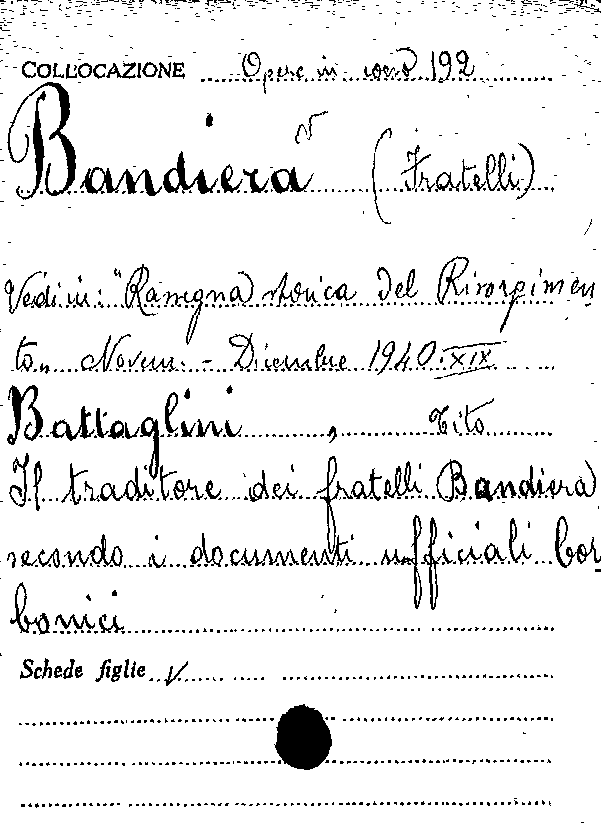 COLLOCAZIONE Opere in corso 192
Bandiera (Fratelli)
Vedi in: "Rassegna storica del Risorgimen
to" Novem. - Dicembre 1940. XIX
Battaglini, Tito
Il traditore dei fratelli Bandiera
secondo i documenti ufficiali bor
bonici
Schede figlie V